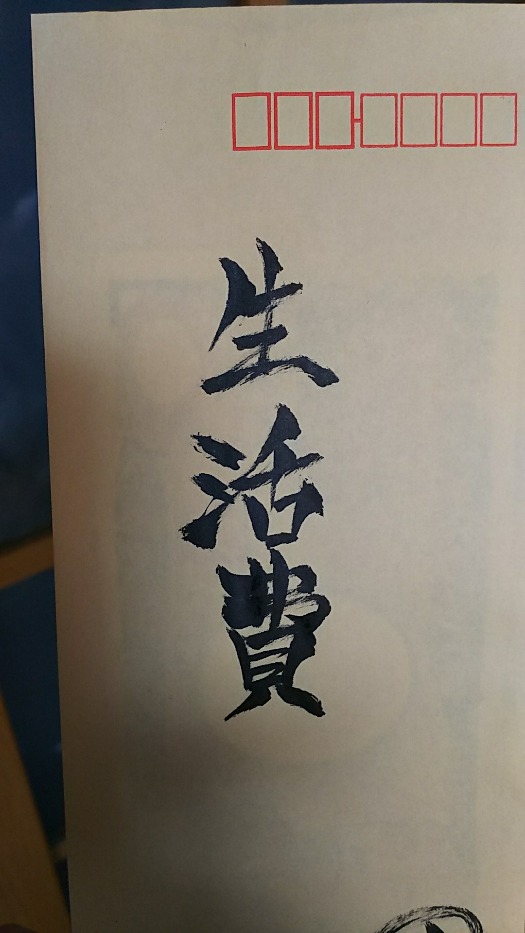 生活費